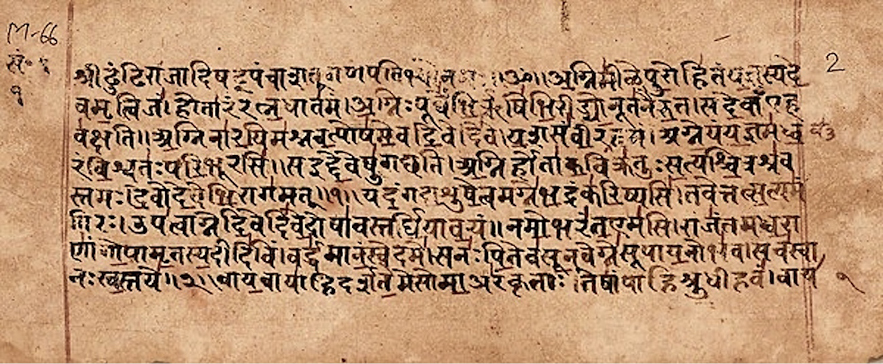 M-66
सं॰ १
१
2
श्रीढुंढिराजादिषट्पंचा गणपति ॥ॐ॥ अग्निमीळेपुरोहितंयज्ञस्यदे
वमृत्विजं। होतारंरत्नधातमं।अग्निःपूर्वेभिर्ऋषिभिरीड्योनूतनैरुत।सदेवाँएह
वक्षति॥अग्निनारयिमश्नवत्पोषमेवदिवेदिवे।यशसंवीरवत्तमं।अग्नेयंयज्ञमध्व
रंविश्वतःपरिभूरसि।सइद्देवेषुगच्छति।अग्निर्होताकविक्रतुःसत्यश्चित्रश्रव
स्तमः।देवोदेवेभिरागमत्॥१॥यदंगदाशुषेत्वमग्नेभद्रंकरिष्यसि।तवेत्तत्सत्यमं
गिरः।उपत्वाग्नेदिवेदिवेदोषावस्तर्धियावयं॥नमोभरंतएमसि।राजंतमध्वरा
णांगोपामृतस्यदीदिविं।वर्द्धमानंस्वेदमे।सनःपितेवसूनवेग्नेसूपायनोभव।सचस्वा
नःस्वस्तये॥२॥वायवायाहिदर्शतेमेसोमाअरंकृताः।तेषांपाहिश्रुधीहवं।वाय